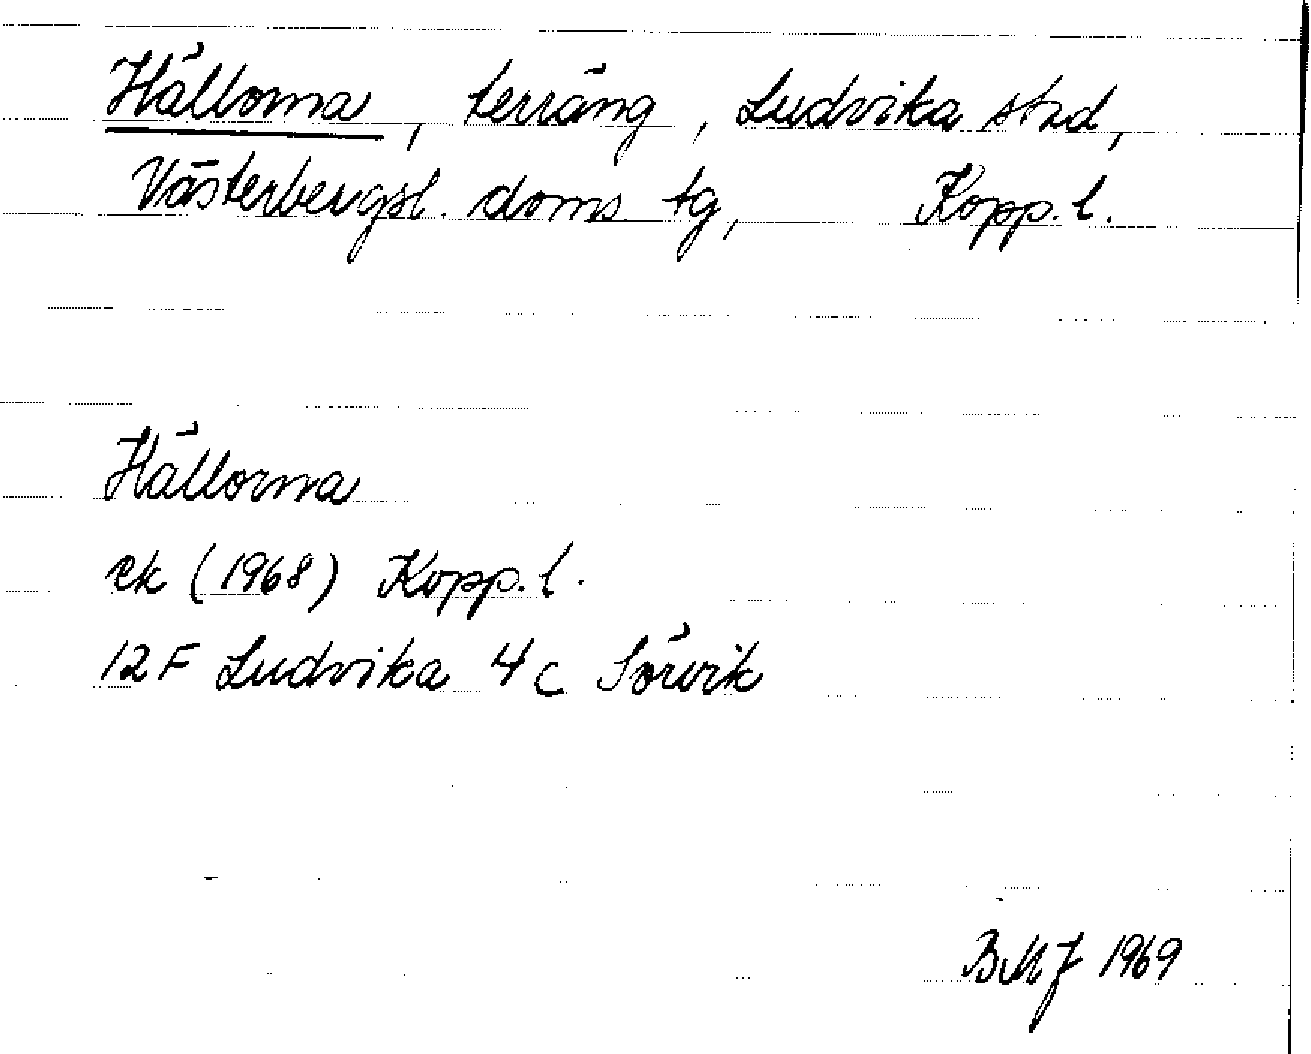 Hällorna, terräng, Ludvika stad,
Västerbergsl. doms tg, Kopp. l.
Hällorna
ek (1968) Kopp. l.
12F Ludvika 4c Sörvik
BMJ 1969